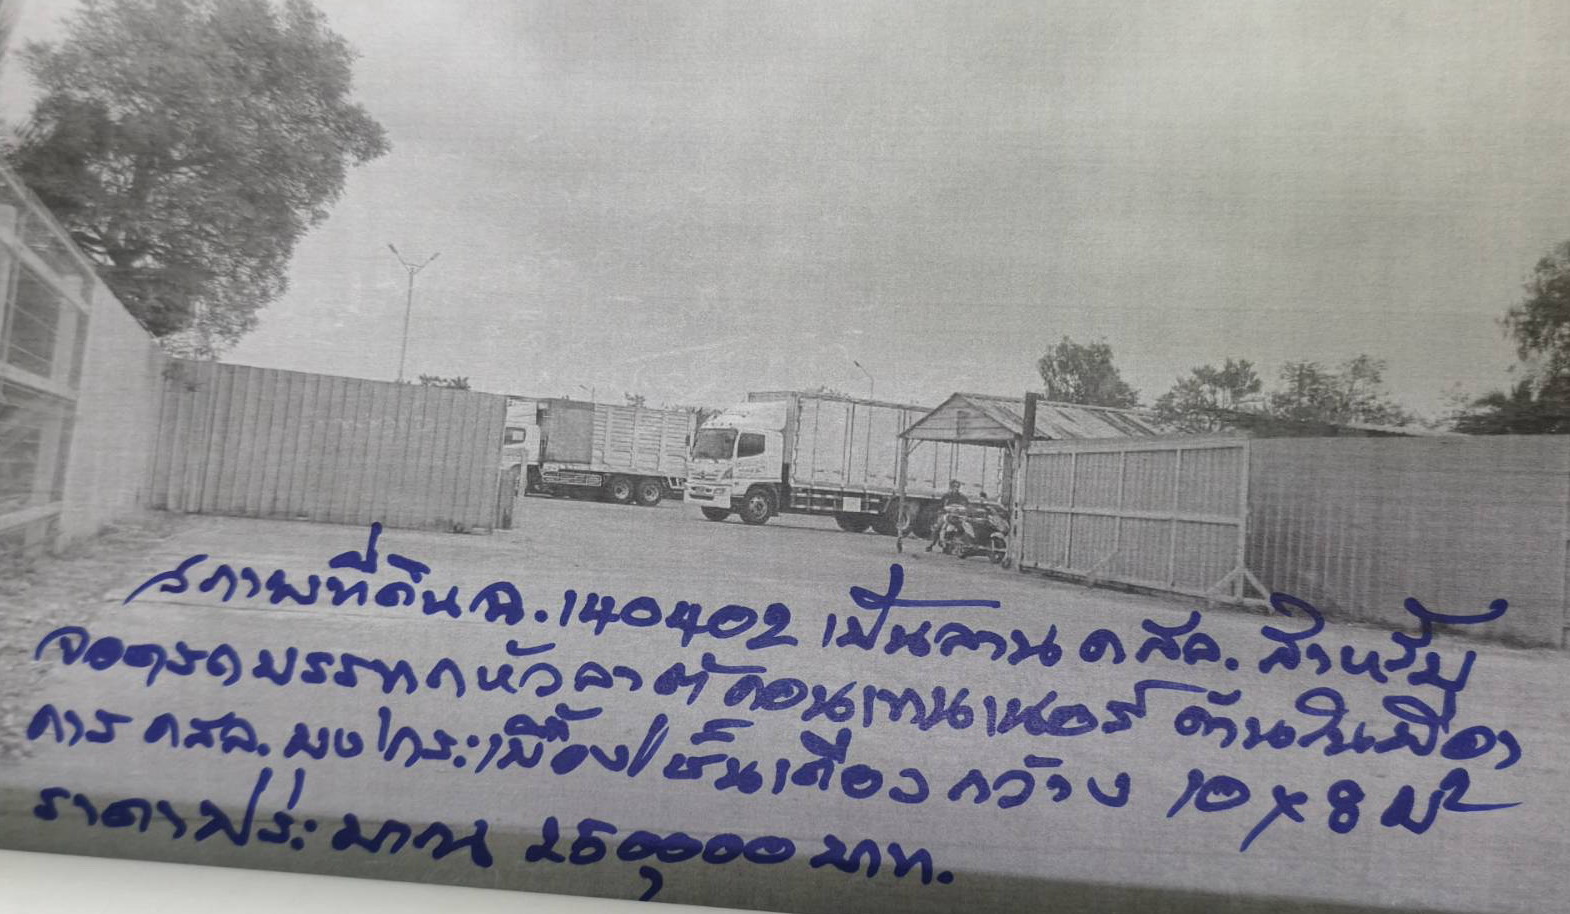 สภาพที่ดิน ฉ.140402 เป็นลาน คสล. สำหรับ
จอดรถบรรทุกหัวลากตู้คอนเทนเนอร์ ด้านในมีอา
คาร คสล. มุงกระเบื้อง/ชั้นเดียว กว้าง 10 x 8 ม²
ราคาประมาณ 250,000 บาท.